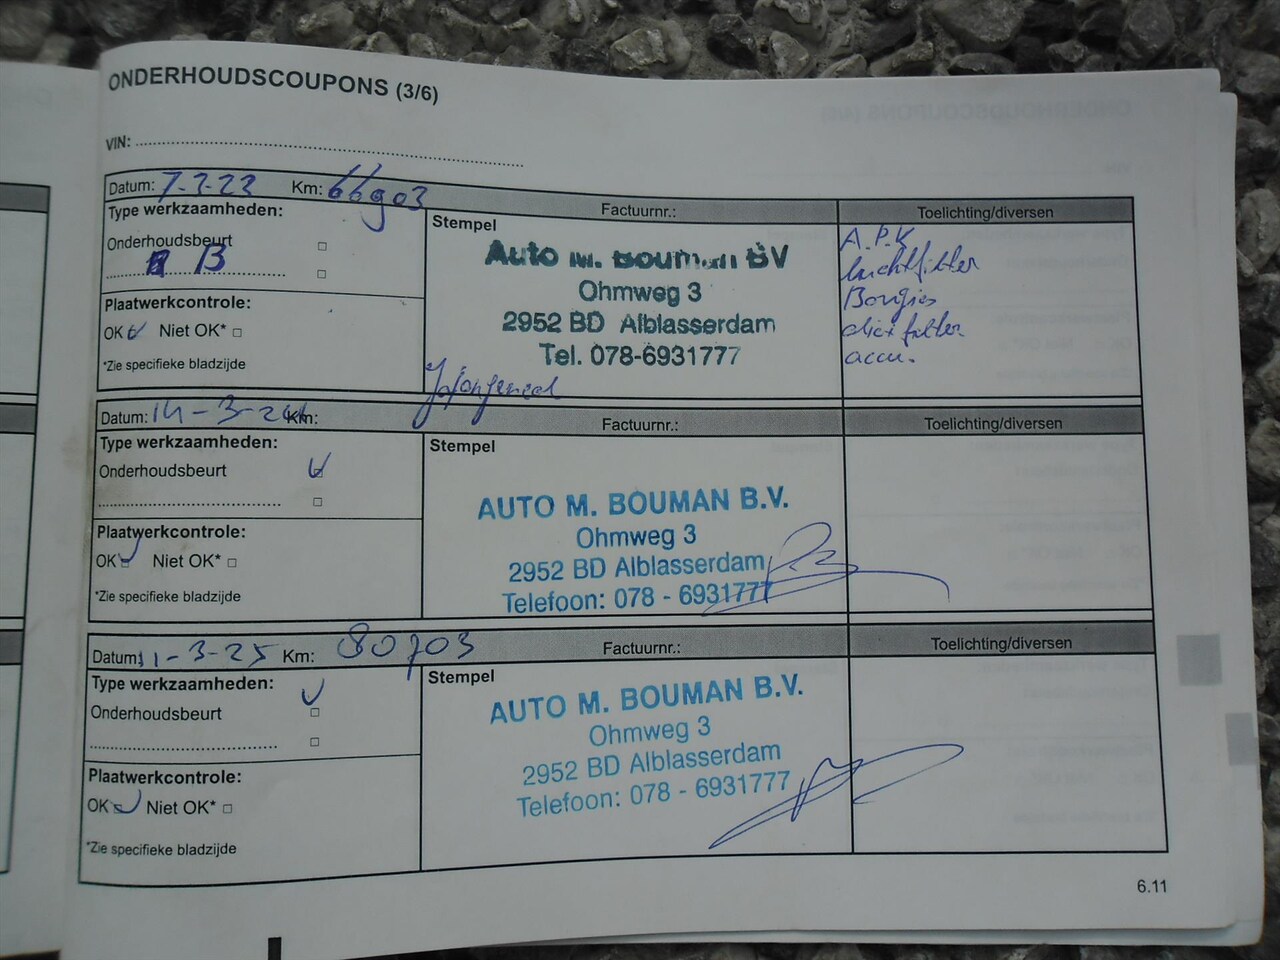 ONDERHOUDSCOUPONS (3/6)
VIN:
Datum: 7-3-23 Km: 66903 Factuurnr.:
Type werkzaamheden: Stempel Toelichting/diversen
Onderhoudsbeurt
B
Auto M. Bouman BV
Ohmweg 3
2952 BD Alblasserdam
Tel. 078-6931777
A.P.K
luchtfilter
Bougies
accu.
Plaatwerkcontrole:
OK Niet OK*
*Zie specifieke bladzijde
Datum: 14-3-24 Km: Factuurnr.: Toelichting/diversen
Type werkzaamheden: Stempel
Onderhoudsbeurt
AUTO M. BOUMAN B.V.
Ohmweg 3
2952 BD Alblasserdam
Telefoon: 078 - 6931777
Plaatwerkcontrole:
OK Niet OK*
*Zie specifieke bladzijde
Datum: 11-3-25 Km: 80703 Factuurnr.: Toelichting/diversen
Type werkzaamheden: Stempel
Onderhoudsbeurt
AUTO M. BOUMAN B.V.
Ohmweg 3
2952 BD Alblasserdam
Telefoon: 078 - 6931777
Plaatwerkcontrole:
OK Niet OK*
*Zie specifieke bladzijde
6.11